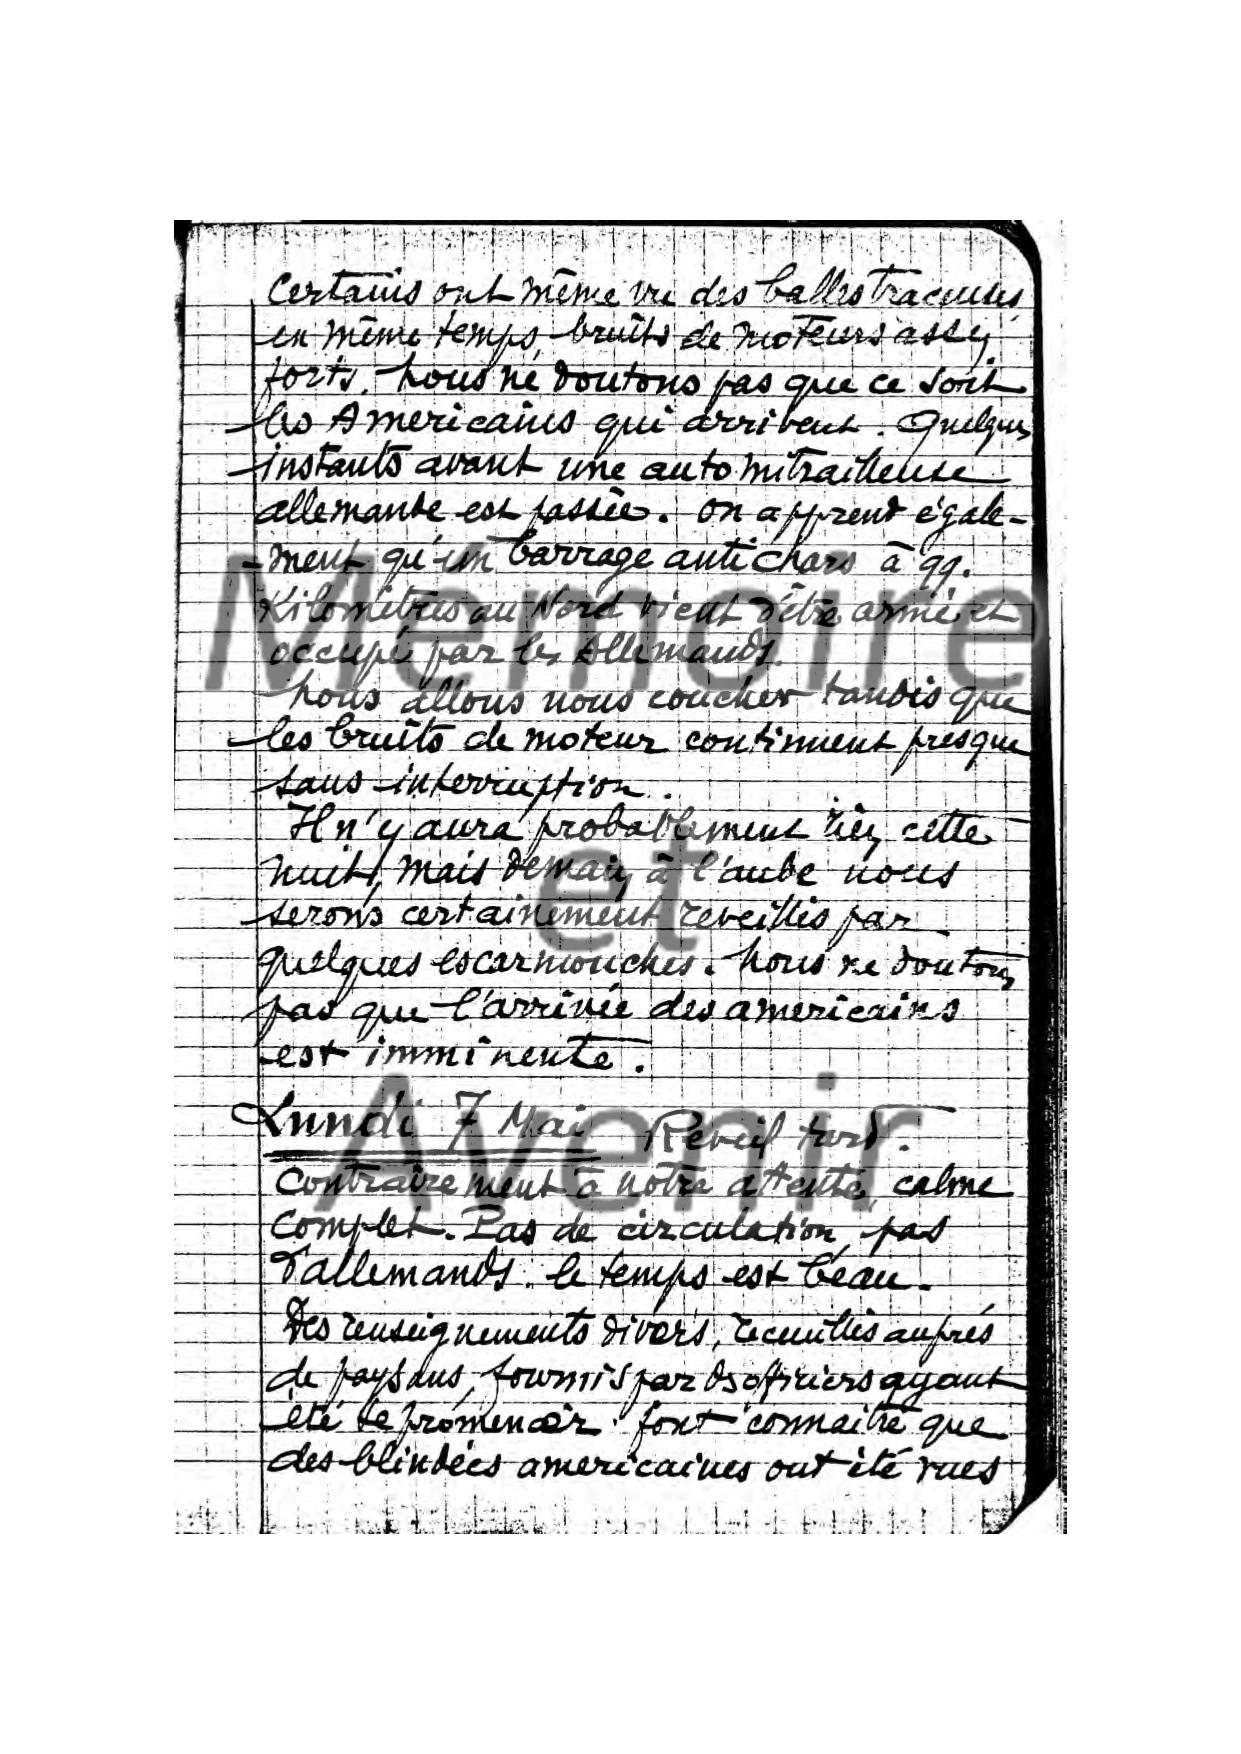 Certains ont même vu des balles traceuses
en même temps, bruits de moteurs assez
forts. Nous ne doutons pas que ce sont
les Americains qui arrivent. Quelques
instants avant une auto mitrailleuse
allemande est passée. On apprend égale-
-ment qu'un barrage antichars à qq.
Kilomètres au Nord vient d'être armé et
occupé par les Allemands.
Nous allons nous coucher tandis que
les bruits de moteur continuent presque
sans interruption.
Il n'y aura probablement rien cette
nuit, mais demain à l'aube nous
serons certainement reveillés par
quelques escarmouches. Nous ne doutons
pas que l'arrivée des americains
est imminente.
Lundi 7 Mai Reveil tard.
Contrairement à notre attente, calme
complet. Pas de circulation, pas
d'allemands. le temps est beau.
Des renseignements divers, recueillis auprès
de paysans, fournis par ds officiers ayant
été se promener font connaitre que
des blindées americaines ont été vues
Mémoire
et
Avenir